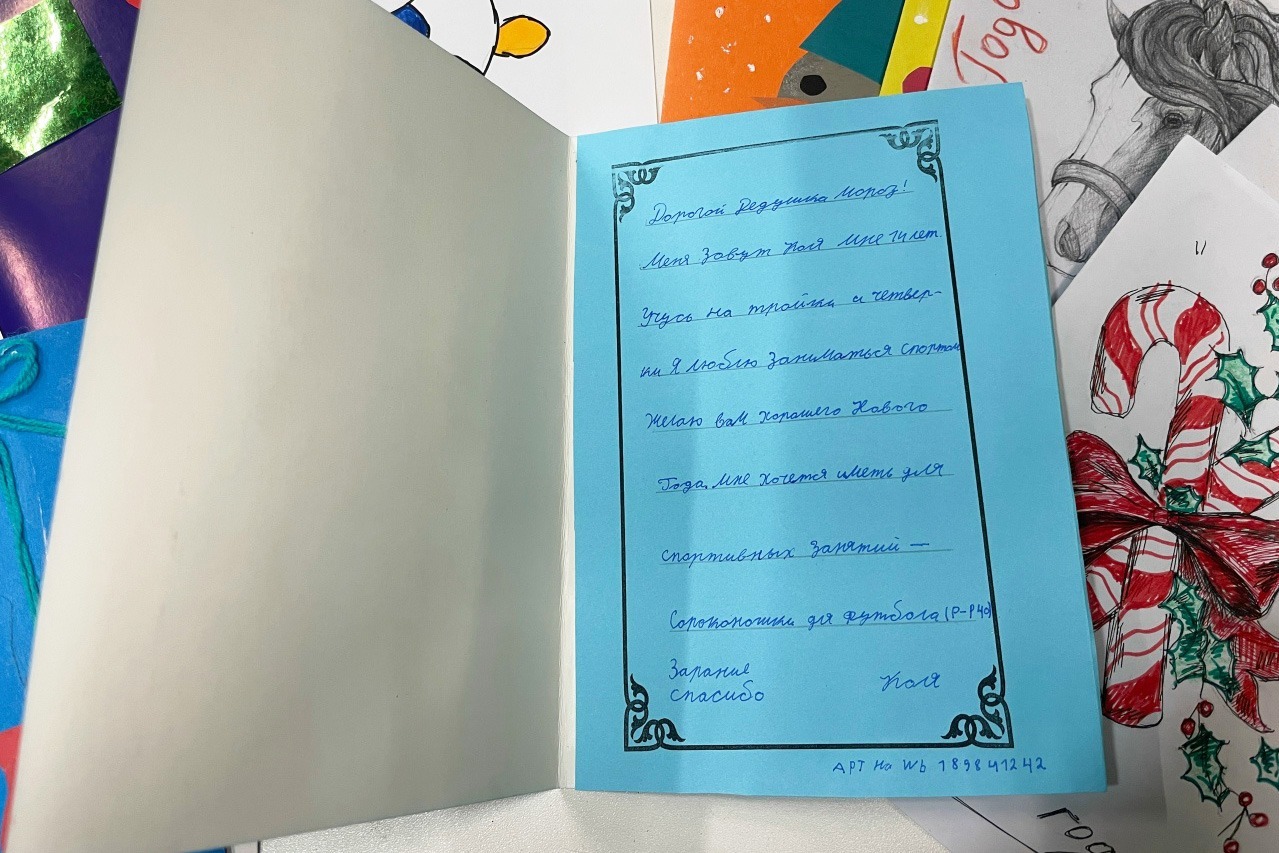 Года
Дорогой Дедушка Мороз!
Меня Зовут Коля Мне 14 лет.
Учусь на тройки и четвер-
ки Я люблю Заниматься спортом
Желаю вам хорошего Нового
Года. Мне хочется иметь для
спортивных занятий —
Сороконошки для футбола (Р-Р40)
Зарание
спасибо
Коля
АРТ На Wb 189841242
год